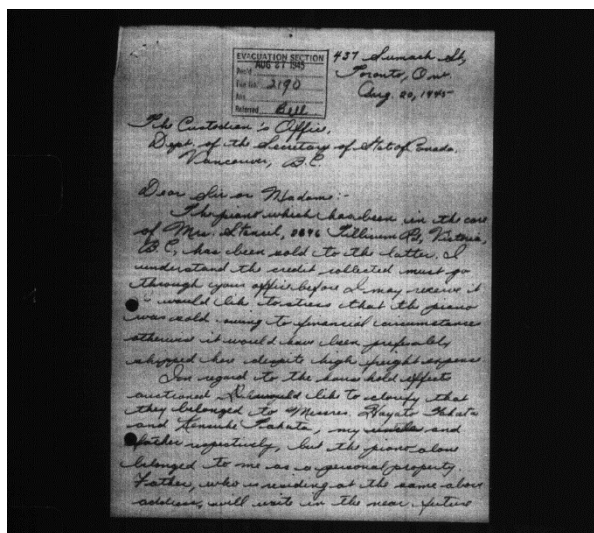 EVACUATION SECTION
AUG 27 1945
Rec'd
File No. 2190
Ans.
Referred Bell
437 Sumach St,
Toronto, Ont.
Aug. 20, 1945
The Custodian's Office,
Dept. of the Secretary of State of Canada,
Vancouver, B.C.
Dear Sir or Madame:-
The piano which has been in the care
of Mrs. Tillicum Rd, Victoria,
B.C. has been sold to the latter. I
understand the credit collected must go
through your office before I may receive it
I would like to stress that the piano
was sold owing to financial circumstances
otherwise it would have been preferably
shipped here despite high freight expense
In regard to the house hold effects
auctioned I would like to clarify that
they belonged to Messrs. Hayato Takata
and Kensuke Takata, my uncle and
father respectively, but the piano alone
belonged to me as a personal property.
Father, who is residing at the same above
address, will write in the near future